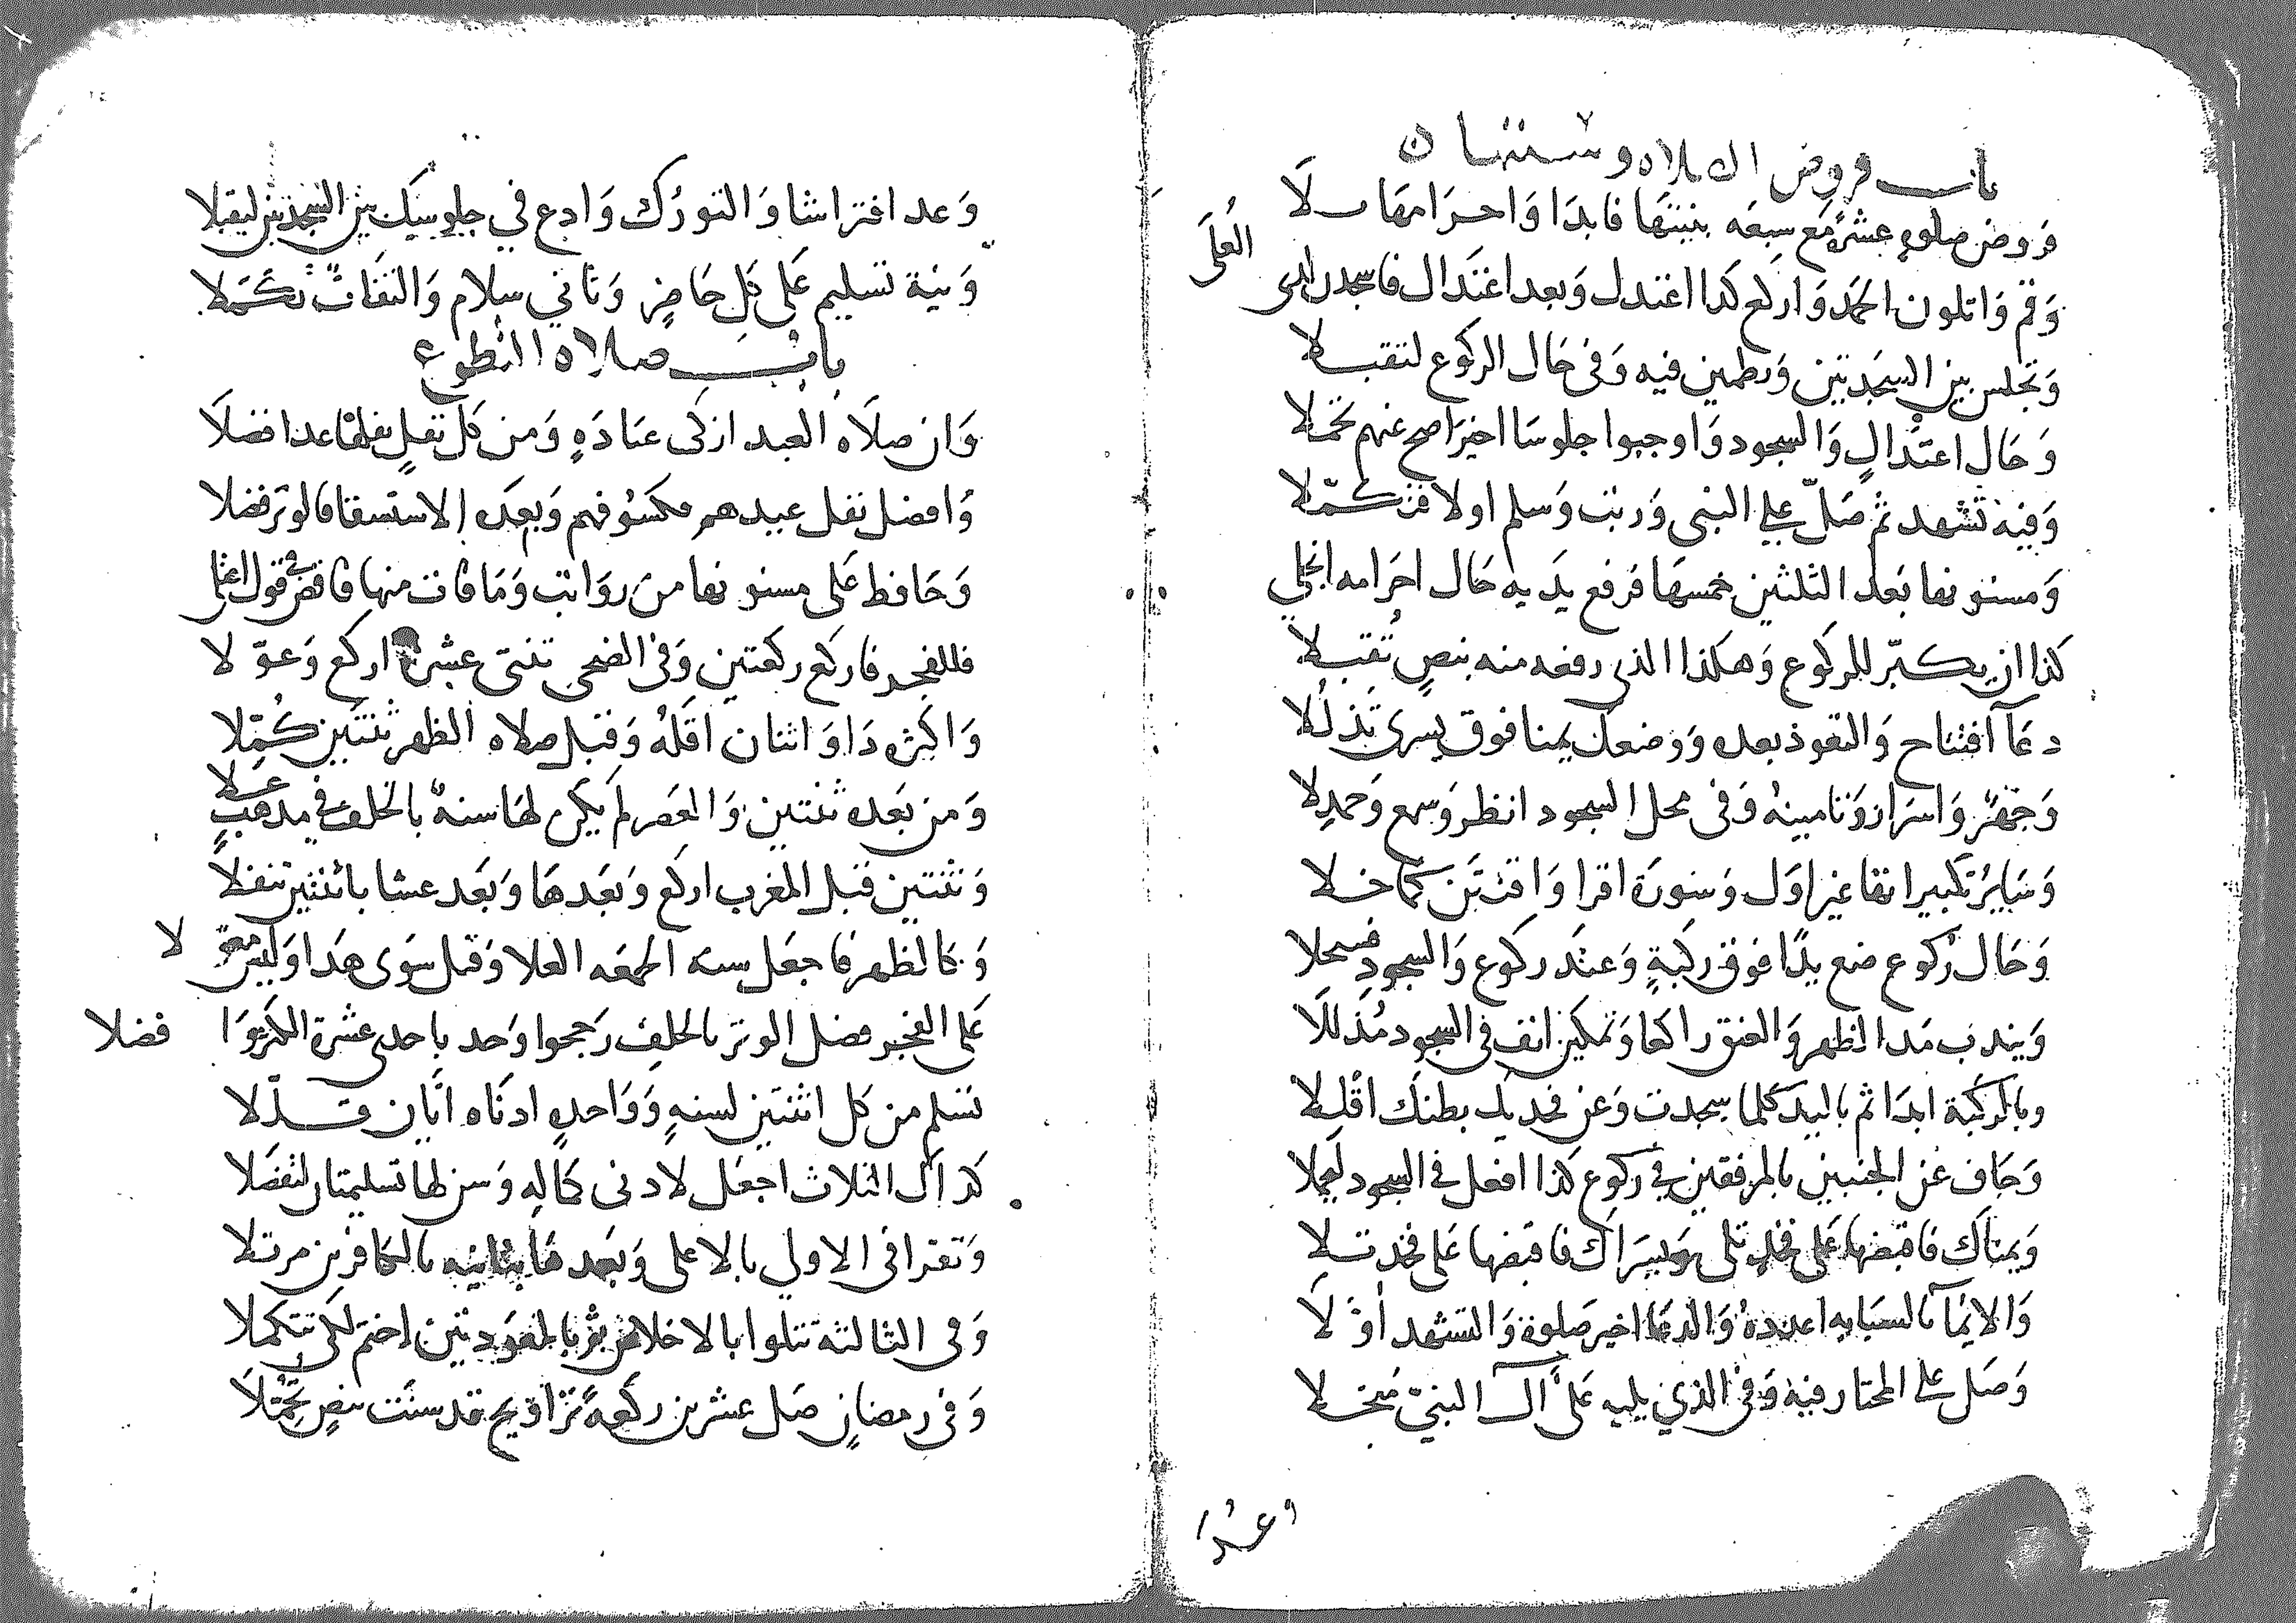 باب فروض الصلاه وسننها
فروض صلوة عشرة مع سبعه بنيتها فابدا واحرامها لا
وقم واتلون الحمد واركع كذا اعتدل وبعد اعتدال فاسجدن لدى العلى
وتجلس بين السجدتين وتطمين فيه وفى حال الركوع لتقبلا
وحال اعتدال والسجود واوجبوا جلوسا اخيرا صح عنهم تحملا
وفيه تشهد ثم صل على النبى ورتب وسلم اولا فتكملا
ومسنونها بعد الثلثين خمسها فرفع يديه حال احرامه انجلى
كذا ان يكبر للركوع وهكذا الذى رفعه منه بنص تقبلا
دعآ افتتاح والتعوذ بعده ووضعك يمنا فوق يسرى تذللا
وجهر واسرار وتامينه وفى محل السجود انظر وسمع وحمدلا
وساير تكبيراتها غير اول وسورة اقرا واقنتن كما خلا
وحال ركوع ضع يدا فوق ركبة وعند ركوع والسجود فسحلا
ويندب مد الظهر والعنق راكعا وتمكين انف فى السجود مذللا
وبالركبة ابدا ثم باليد كلما سجدت وعن فخديك بطنك اقللا
وجاف عن الجنبين بالمرفقين في ركوع كذا افعل في السجود ليجملا
ويمناك فاقبضها على فخد تلى ويسراك فاقبضها على فخد تلا
والايمآ بالسبابه اعدده والدعا اخير صلوة والتشهد اولا
وصل على المختار فيه وفى الذي يليه على آل النبي مبخلا
وعدا
وعد افتراشا والتورك وادع في جلوسك بين السجدتين ليقبلا
ونية تسليم على كل حاضر وثاني سلام والتفات تكملا
باب صلاه التطوع
وان صلاه العبد ازكى عباده ومن كل نفل نفلها عدا فضلا
وافضل نفل عيدهم فكسوفهم وبعده الاستسقا فالوتر فضلا
وحافظ على مسنونها من رواتب وما فات منها فاقض في قول اعتلى
فللفجر فاركع ركعتين وفى الضحى ثنتى عشر اركع وعولا
واكثر ذا واثنان اقله وقبل صلاه الظهر ثنتين كملا
ومن بعده ثنتين والعصر لم يكن لها سنة بالخلف في مذهب علا
وثنتين قبل المغرب اركع وبعدها وبعد عشا باثنتين تنفلا
وكالظهر فاجعل سنه الجمعه العلا وقبل سوى هذا وليس مفضلا
على الفجر فضل الوتر بالخلف رجحوا وحد باحدى عشرة اكثروا فضلا
تسلم من كل اثنتين لسنة وواحدة ادناه اتيان قللا
كذاك الثلاث اجعل لادنى كماله وسن لها تسليمتان لتفضلا
وتقرا فى الاولي بالاعلى وبعدها بثانيه بالكافرين مرتلا
وفى الثالثه تتلوا بالاخلاص ثم بالمعوذتين اختم لكى تتكملا
وفى رمضان صل عشرين ركعة تراويح قد سنت بنص تجملا